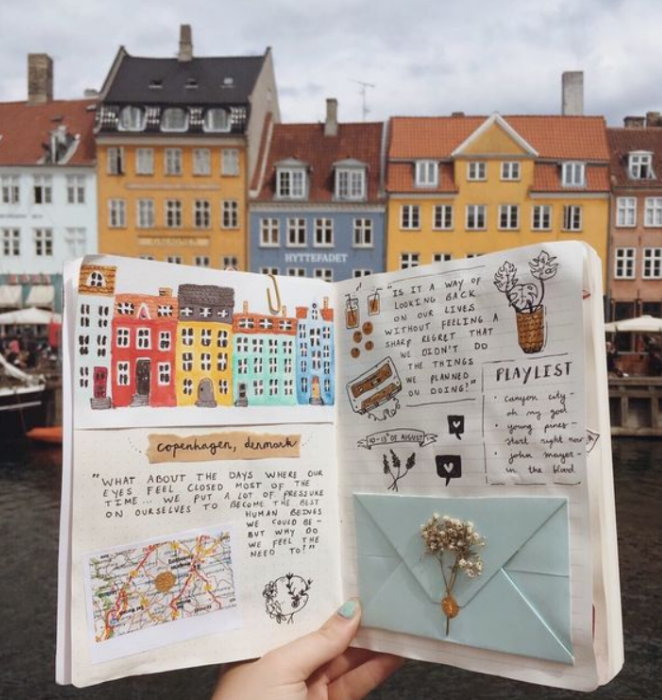 HYTTEFADET
copenhagen, denmark
"WHAT ABOUT THE DAYS WHERE OUR
EYES FEEL CLOSED MOST OF THE
TIME... WE PUT A LOT OF PRESSURE
ON OURSELVES TO BECOME THE BEST
HUMAN BEINGS
WE COULD BE -
BUT WHY DO
WE FEEL THE
NEED TO?"
"IS IT A WAY OF
LOOKING BACK
ON OUR LIVES
WITHOUT FEELING A
SHARP REGRET THAT
WE DIDN'T DO
THE THINGS
WE PLANNED
ON DOING?"
PLAYLIST
• canyon city -
oh my god
• young pines -
start right now
• john mayer -
in the blood
10-13th OF AUGUST